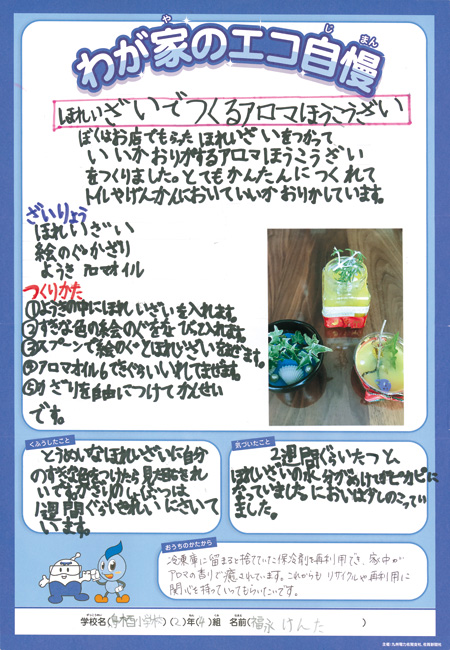 わが家のエコ自慢
ほれいざいでつくるアロマほうこうざい
ぼくはお店でもらったほれいざいをつかって
いいかおりがするアロマほうこうざい
をつくりました。とてもかんたんにつくれて
トイレやげんかんにおいていいかおりしています。
ざいりょう
ほれいざい
絵のぐ かざり
ようき アロマオイル
つくりかた
①ようきの中にほれいざいを入れます。
②すきな色の絵のぐを入れます。
③スプーンで絵のぐとほれいざいをまぜます。
④アロマオイル6てきぐらいいれてまぜます。
⑤かざりを自由につけてかんせい
です。
くふうしたこと
とうめいなほれいざいに自分
のすきな色をつけたら見た目もきれ
いです。かざりのしょくぶつは
1週間ぐらいきれいにさいて
います。
気づいたこと
2週間ぐらいたつと、
ほれいざいの水分がぬけて
なっていました においは少しのこってい
ました。
おうちのかたから
冷凍庫に留まると捨てていた保冷剤を再利用でき、家中が
アロマの香りで癒されています。これからもリサイクルや再利用に
関心を持っていってもらいたいです。
学校名(鳥栖小学校)(2)年(4)組 名前(福永 けんた)
主催:九州電力佐賀支社、佐賀新聞社